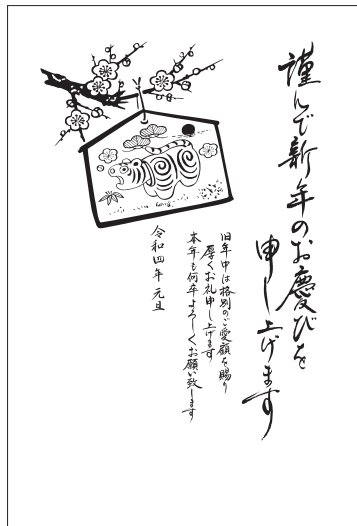 謹んで新年のお慶びを
申し上げます
旧年中は格別のご愛顧を賜り
厚くお礼申し上げます
本年も何卒よろしくお願い致します
令和四年 元旦